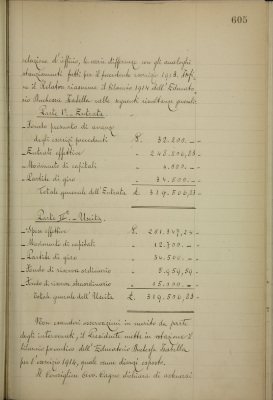 605
relazione d'ufficio, le varie differenze con gli analoghi
stanziamenti fatti per il precedente esercizio 1913. Infi-
ne il Relatore riassume il bilancio 1914 dell'Educato-
rio Principessa Isabella nelle seguenti risultanze generali:
Parte Iª - Entrata
- Fondo presunto di avanzo
degli esercizi precedenti £. 32.200. -
- Entrate effettive " 245.806,23 -
- Movimento di capitali
- Partite di giro " 34.500. -
Totale generale dell'Entrata £. 319.506,23 -
Parte IIª - Uscita
- Spese effettive £.
- Movimento di capitali " 12.700. -
- Partite di giro " 34.500. -
- Fondo di riserva ordinario
- Fondo di riserva straordinario
Totale generale dell'Uscita £. 319.506,23 -
Non essendovi osservazioni in merito da parte
degli intervenuti, il Presidente mette in votazione il
bilancio preventivo dell'Educatorio Isabella
per l'esercizio 1914, quale venne dianzi esposto.
Il Consigliere Cav. dichiara di astenersi